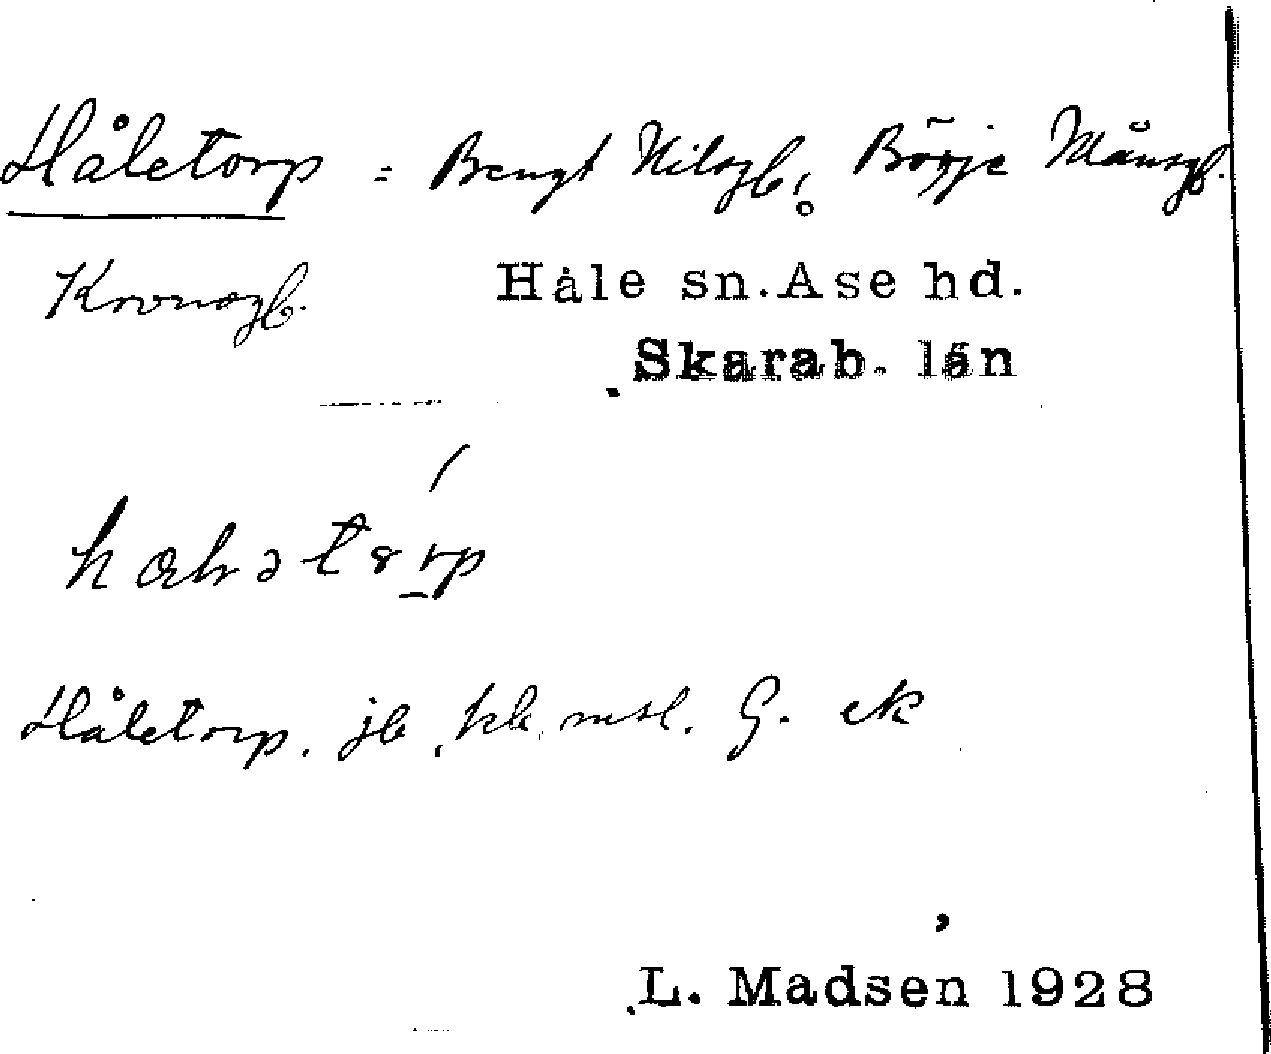 Håletorp = Bengt Nilsgb; Börje Månsgb.
Kronogb. Håle sn. Åse hd.
Skarab. län
Håletorp. jb, kk, msl. G. ek
L. Madsen 1928